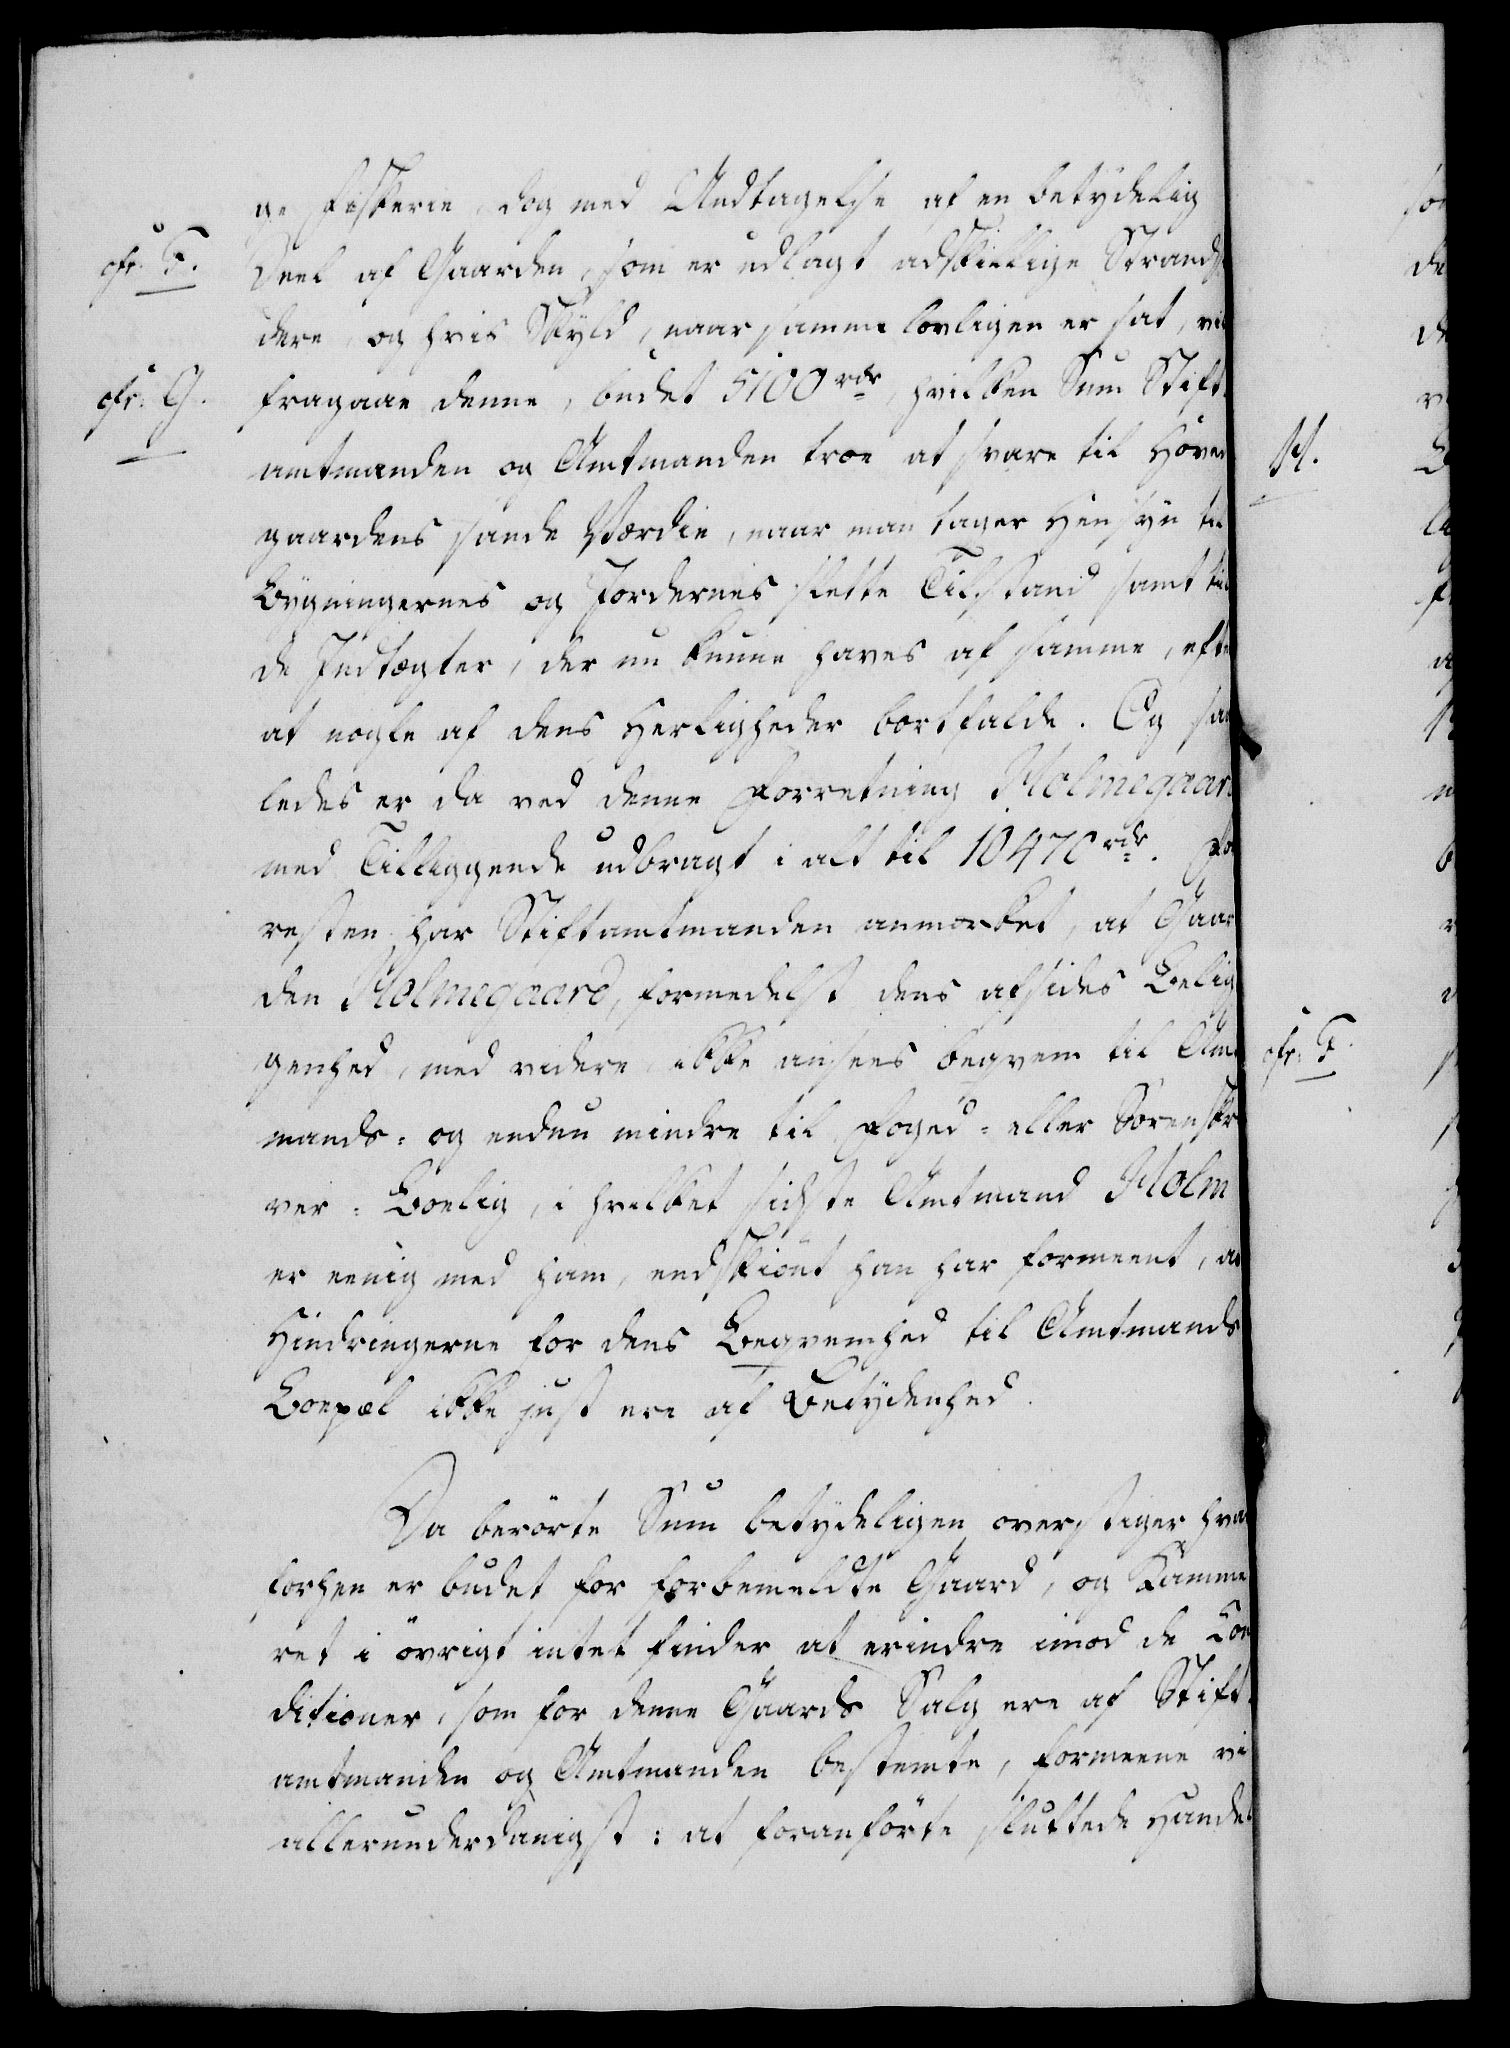 ge Fiskerie, dog med Undtagelse af en betydelig
cfr. F.
Deel af Gaarden, som er udlagt adskillige Strands
dere, og hvis Skyld, naar samme lovligen er sat, vil
cfr. G.
fragaae denne, budet 5100 rdr, hvilken Sum Stift
amtmanden og Amtmanden troe at svare til Hoved
gaardens sande Værdie, naar man tager Hensyn til
Bygningernes og Jordernes slette Tilstand samt til
de Indtægter, der nu kunne haves af samme, efter
at nogle af dens Herligheder bortfalde. Og saa
ledes er da ved denne Forretning Holmegaard
med Tilliggende udbragt i alt til 10470 rdr. For
resten har Stiftamtmanden anmærket, at Gaar
den Holmegaard, formedelst dens afsides Belig
genhed, med videre, ikke ansees beqvem til Amt
mands- og endnu mindre til Foged- eller Sorenskri
ver-Boelig, i hvilket sidste Amtmand Holm
er eenig med ham, endskiönt han har formeent, at
Hindringerne for dens Beqvemhed til Amtmands
Boepæl ikke just ere af Betydenhed.
Da berörte Sum betydeligen overstiger hvad
forhen er budet for forbemeldte Gaard, og Kamme
ret i övrigt intet finder at erindre imod de Con
ditioner, som for denne Gaards Salg ere af Stift
amtmanden og Amtmanden bestemte, formeene vi
allerunderdanigst: at foranförte sluttede Handel
H.
cfr. F.